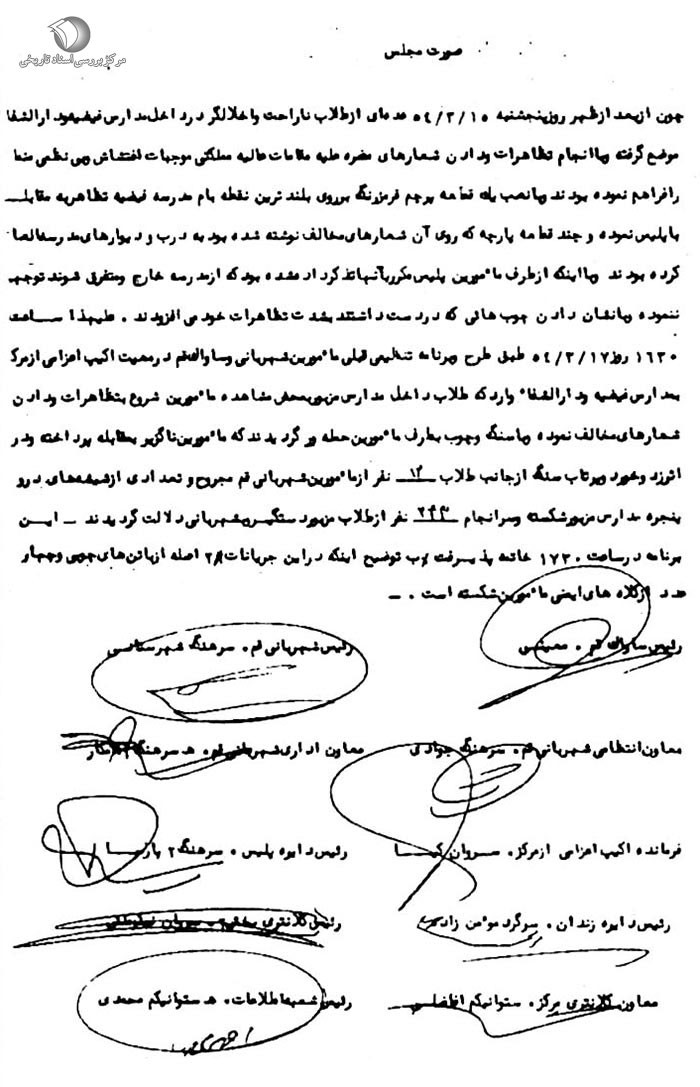 مرکز بررسی اسناد تاریخی
صورت مجلس
چون از بعد از ظهر روز پنجشنبه ۵۴/۳/۱۵ عده‌ای از طلاب ناراحت و اخلالگر در داخل مدارس فیضیه و دارالشفا
موضع گرفته و با انجام تظاهرات و دادن شعارهای مضره علیه مقامات عالیه مملکتی موجبات اغتشاش و بی نظمی
را فراهم نموده بودند و با نصب یک قطعه پرچم قرمز رنگ بر روی بلند ترین نقطه بام مدرسه فیضیه تظاهر به مقابله
با پلیس نموده و چند قطعه پارچه که روی آن شعارهای مخالف نوشته شده بود به درب و دیوارهای مدرسه
کرده بودند و با اینکه از طرف مأمورین پلیس مکرر بآنها تذکر داده شده بود که از مدرسه خارج و متفرق شوند توجهی
ننموده و با نشان دادن چوب هائی که در دست داشتند بشدت تظاهرات خود می افزودند . علیهذا ساعت
۱۶۳۰ روز ۵۴/۳/۱۷ طبق طرح و برنامه تنظیمی قبلی مأمورین شهربانی و ساواک قم در معیت اکیپ اعزامی از مرکز
بمدارس فیضیه و دارالشفاء وارد که طلاب داخل مدارس مزبور بمحض مشاهده مأمورین شروع بتظاهرات و دادن
شعارهای مخالف نموده و با سنگ و چوب بطرف مأمورین حمله ور گردیدند که مأمورین ناگزیر بمقابله پرداخته و در
اثر زد و خورد و پرتاب سنگ از جانب طلاب نفر از مأمورین شهربانی قم مجروح و تعدادی از شیشه‌های در و
پنجره مدارس مزبور شکسته و سرانجام نفر از طلاب مزبور دستگیر و بشهربانی دلالت گردیدند – این
برنامه در ساعت ۱۷۳۰ خاتمه پذیرفت توضیح اینکه در این جریانات اصله از باتن‌های چوبی و چهار
عدد از کلاه های ایمنی مأمورین شکسته است . –
رئیس ساواک قم . معینی
رئیس شهربانی قم . سرهنگ شهرستانی
معاون انتظامی شهربانی قم . سرهنگ جوادی
معاون اداری شهربانی قم . سرهنگ
فرمانده اکیپ اعزامی از مرکز . سروان
رئیس دایره پلیس . سرهنگ ۲ پارسا
رئیس دایره زندان . سرگرد مومن زاده
رئیس کلانتری سروان
معاون کلانتری مرکز . ستوانیکم
رئیس شعبه اطلاعات . ستوانیکم محمدی